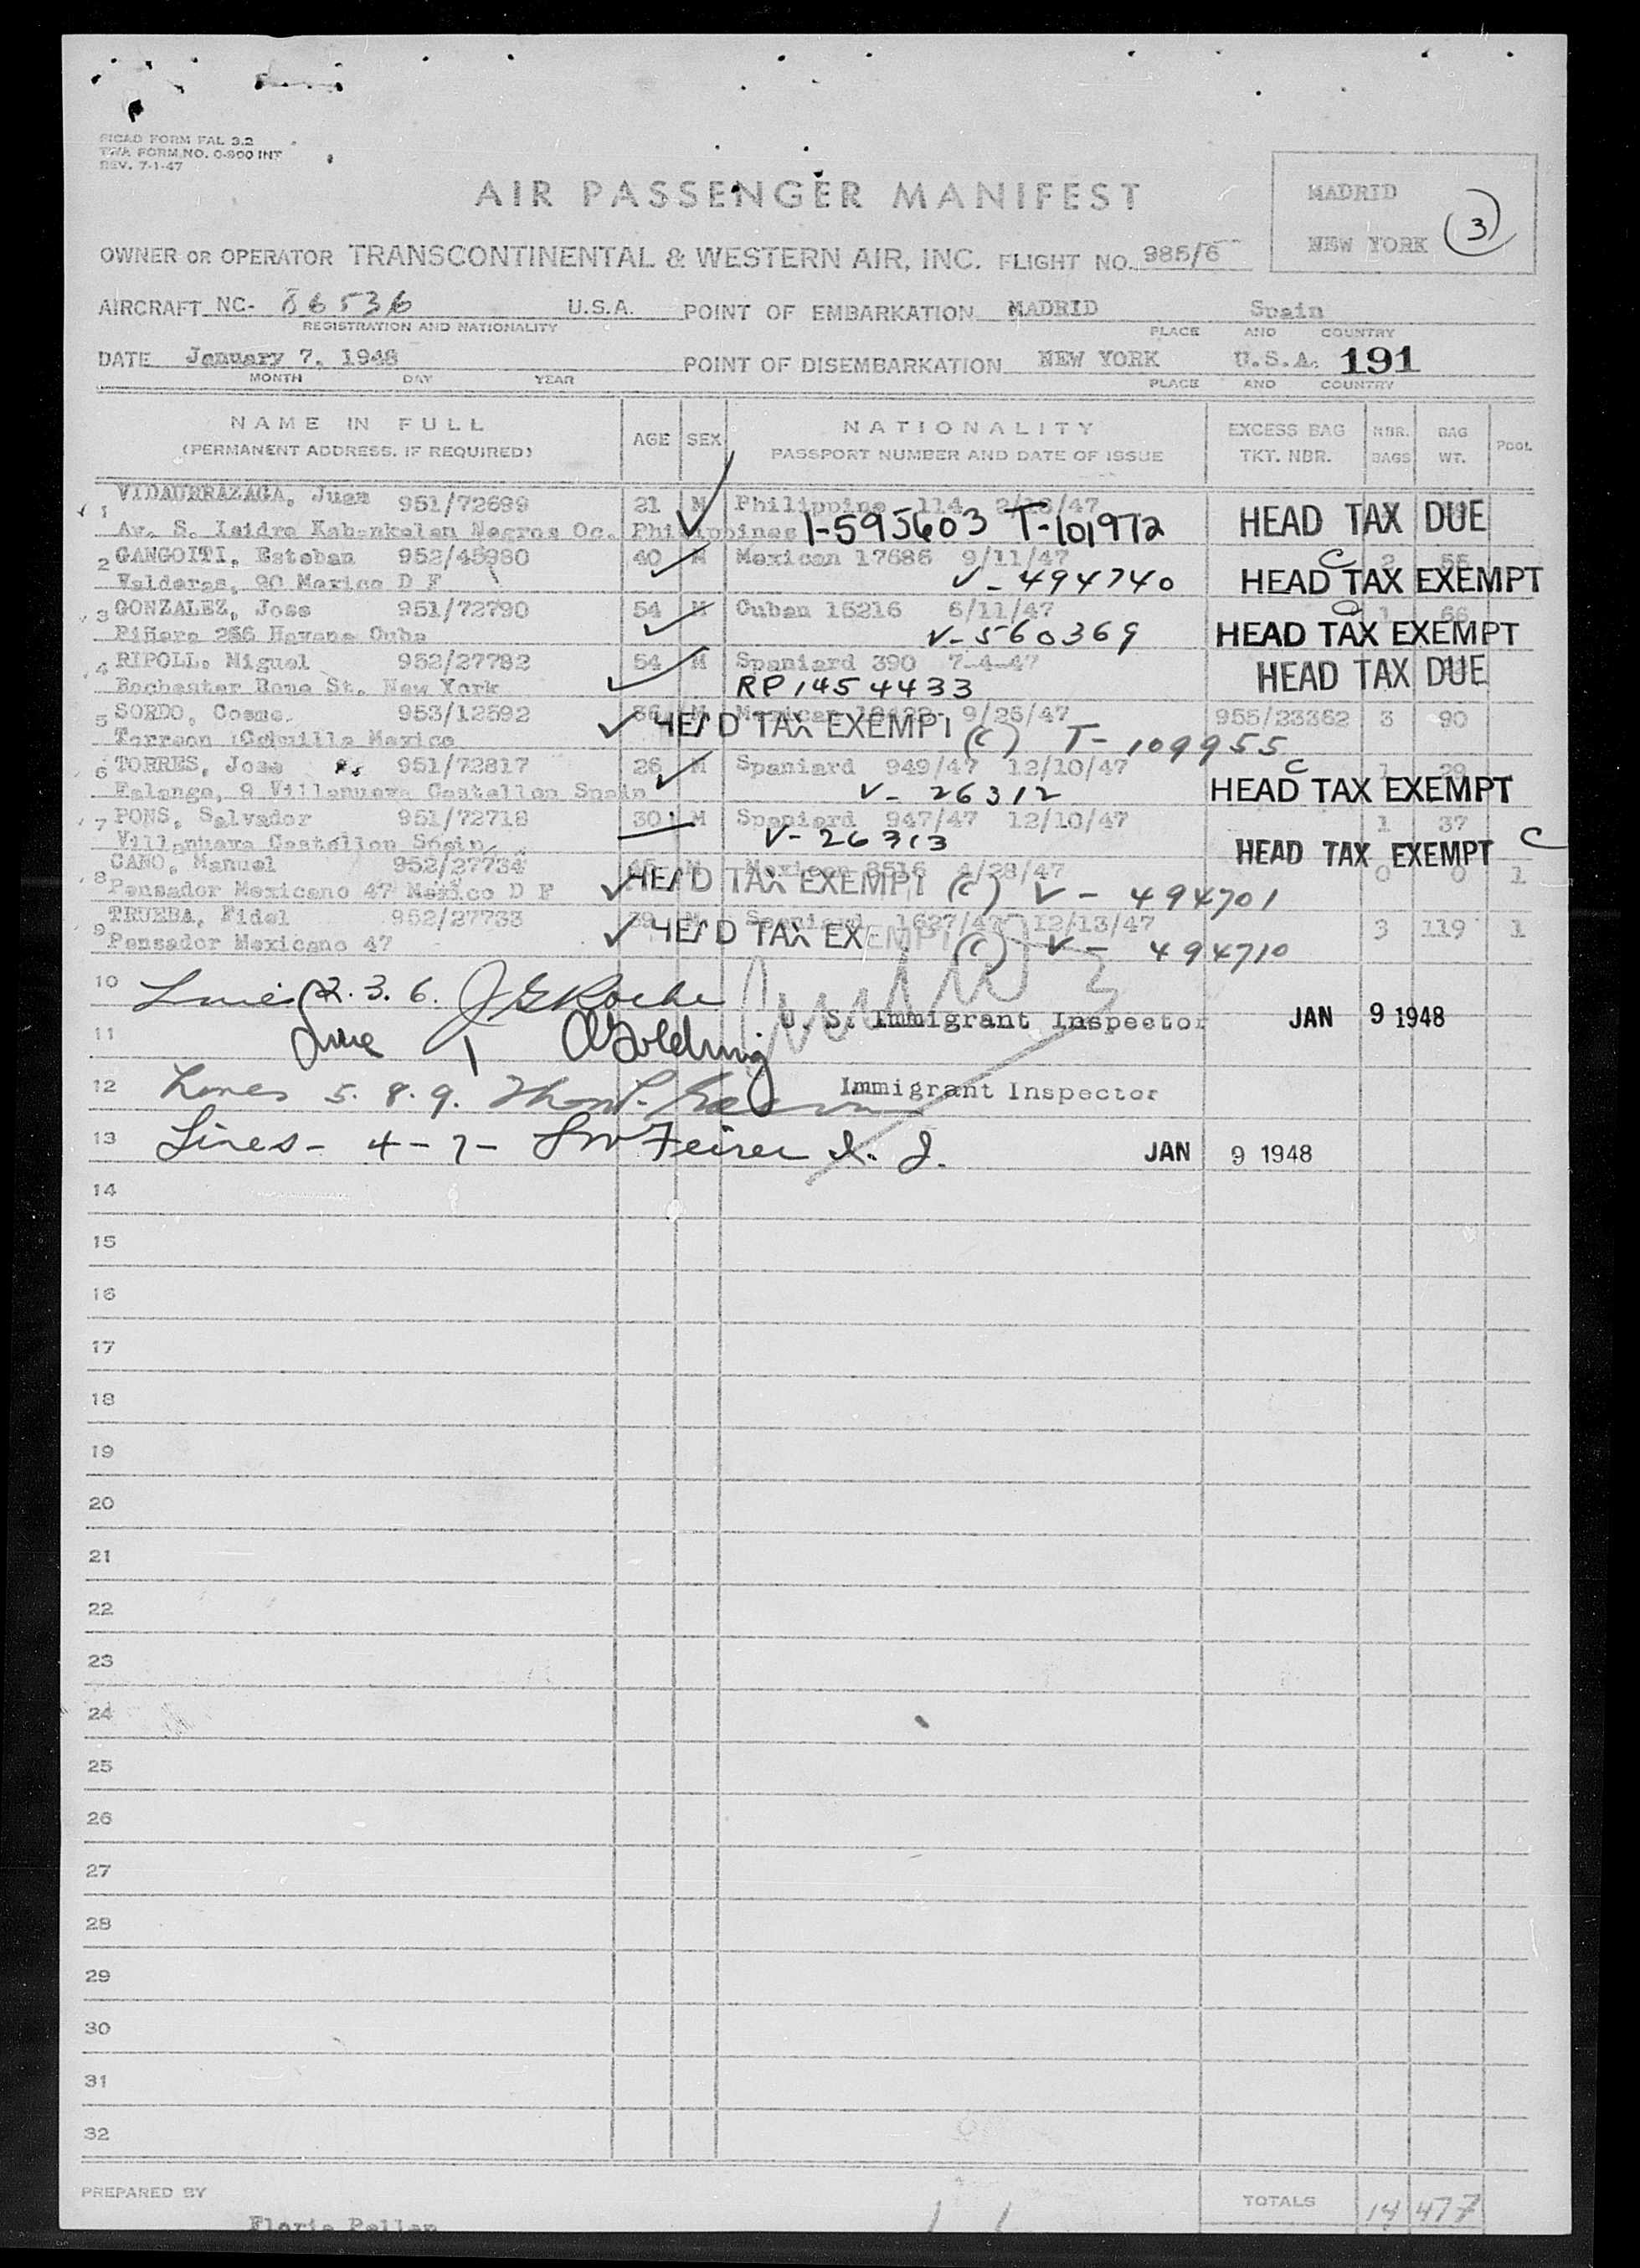 TWA FORM NO. 0-900 INT
REV. 7-1-47
AIR PASSENGER MANIFEST
MADRID
NEW YORK
3
OWNER OR OPERATOR TRANSCONTINENTAL & WESTERN AIR, INC. FLIGHT NO. 985/6
AIRCRAFT NC- 86536 U.S.A. POINT OF EMBARKATION MADRID Spain
REGISTRATION AND NATIONALITY PLACE AND COUNTRY
DATE January 7, 1948 POINT OF DISEMBARKATION NEW YORK U.S.A. 191
MONTH DAY YEAR PLACE AND COUNTRY
NAME IN FULL AGE SEX NATIONALITY EXCESS BAG NBR. BAG POOL
(PERMANENT ADDRESS, IF REQUIRED) PASSPORT NUMBER AND DATE OF ISSUE TKT. NBR. BAGS WT.
1 VIDAURRAZAGA, Juan 951/72699 21 M Philippine 114 HEAD TAX DUE
Av. S. Isidro Kabankalan Negros Oc. Philippines 1-595603 T-101972
2 GANGOITI, Esteban 952/45980 40 M Mexican 17686 9/11/47 C 2 55
Valderas, 90 Mexico D F V-494740 HEAD TAX EXEMPT
3 GONZALEZ, Jose 951/72790 54 M Cuban 15216 6/11/47 C 1 66
Piñera 256 Havana Cuba V-560369 HEAD TAX EXEMPT
4 RIPOLL, Miguel 952/27792 54 M Spaniard 390 7-4-47 HEAD TAX DUE
Rochester Rome St. New York RP 1454433
5 SORDO, Cosme. 953/12592 36 M Mexican 9/25/47 955/23362 3 90
Torreon Mexico HEAD TAX EXEMPT (C) T-109955
6 TORRES, Jose 951/72817 26 M Spaniard 949/47 12/10/47 C 1 29
Falange, 9 Villanueva Castellon Spain V-26312 HEAD TAX EXEMPT
7 PONS, Salvador 951/72718 30 M Spaniard 947/47 12/10/47 1 37
Villanueva Castellon Spain V-26313 HEAD TAX EXEMPT C
8 CANO, Manuel 952/27734 M Mexican 0 0 1
Pensador Mexicano 47 Mexico D F HEAD TAX EXEMPT (C) V-494701
9 TRUEBA, Fidel 952/27733 39 M Spaniard 1627/47 12/13/47 3 119 1
Pensador Mexicano 47 HEAD TAX EXEMPT (C) V-494710
10 Lines 2.3.6. J G Roche
U. S. Immigrant Inspector JAN 9 1948
11 Line 1 Golding
12 Lines 5.8.9. Immigrant Inspector
13 Lines- 4-7- Feirer I. I. JAN 9 1948
14
15
16
17
18
19
20
21
22
23
24
25
26
27
28
29
30
31
32
PREPARED BY TOTALS 14 477